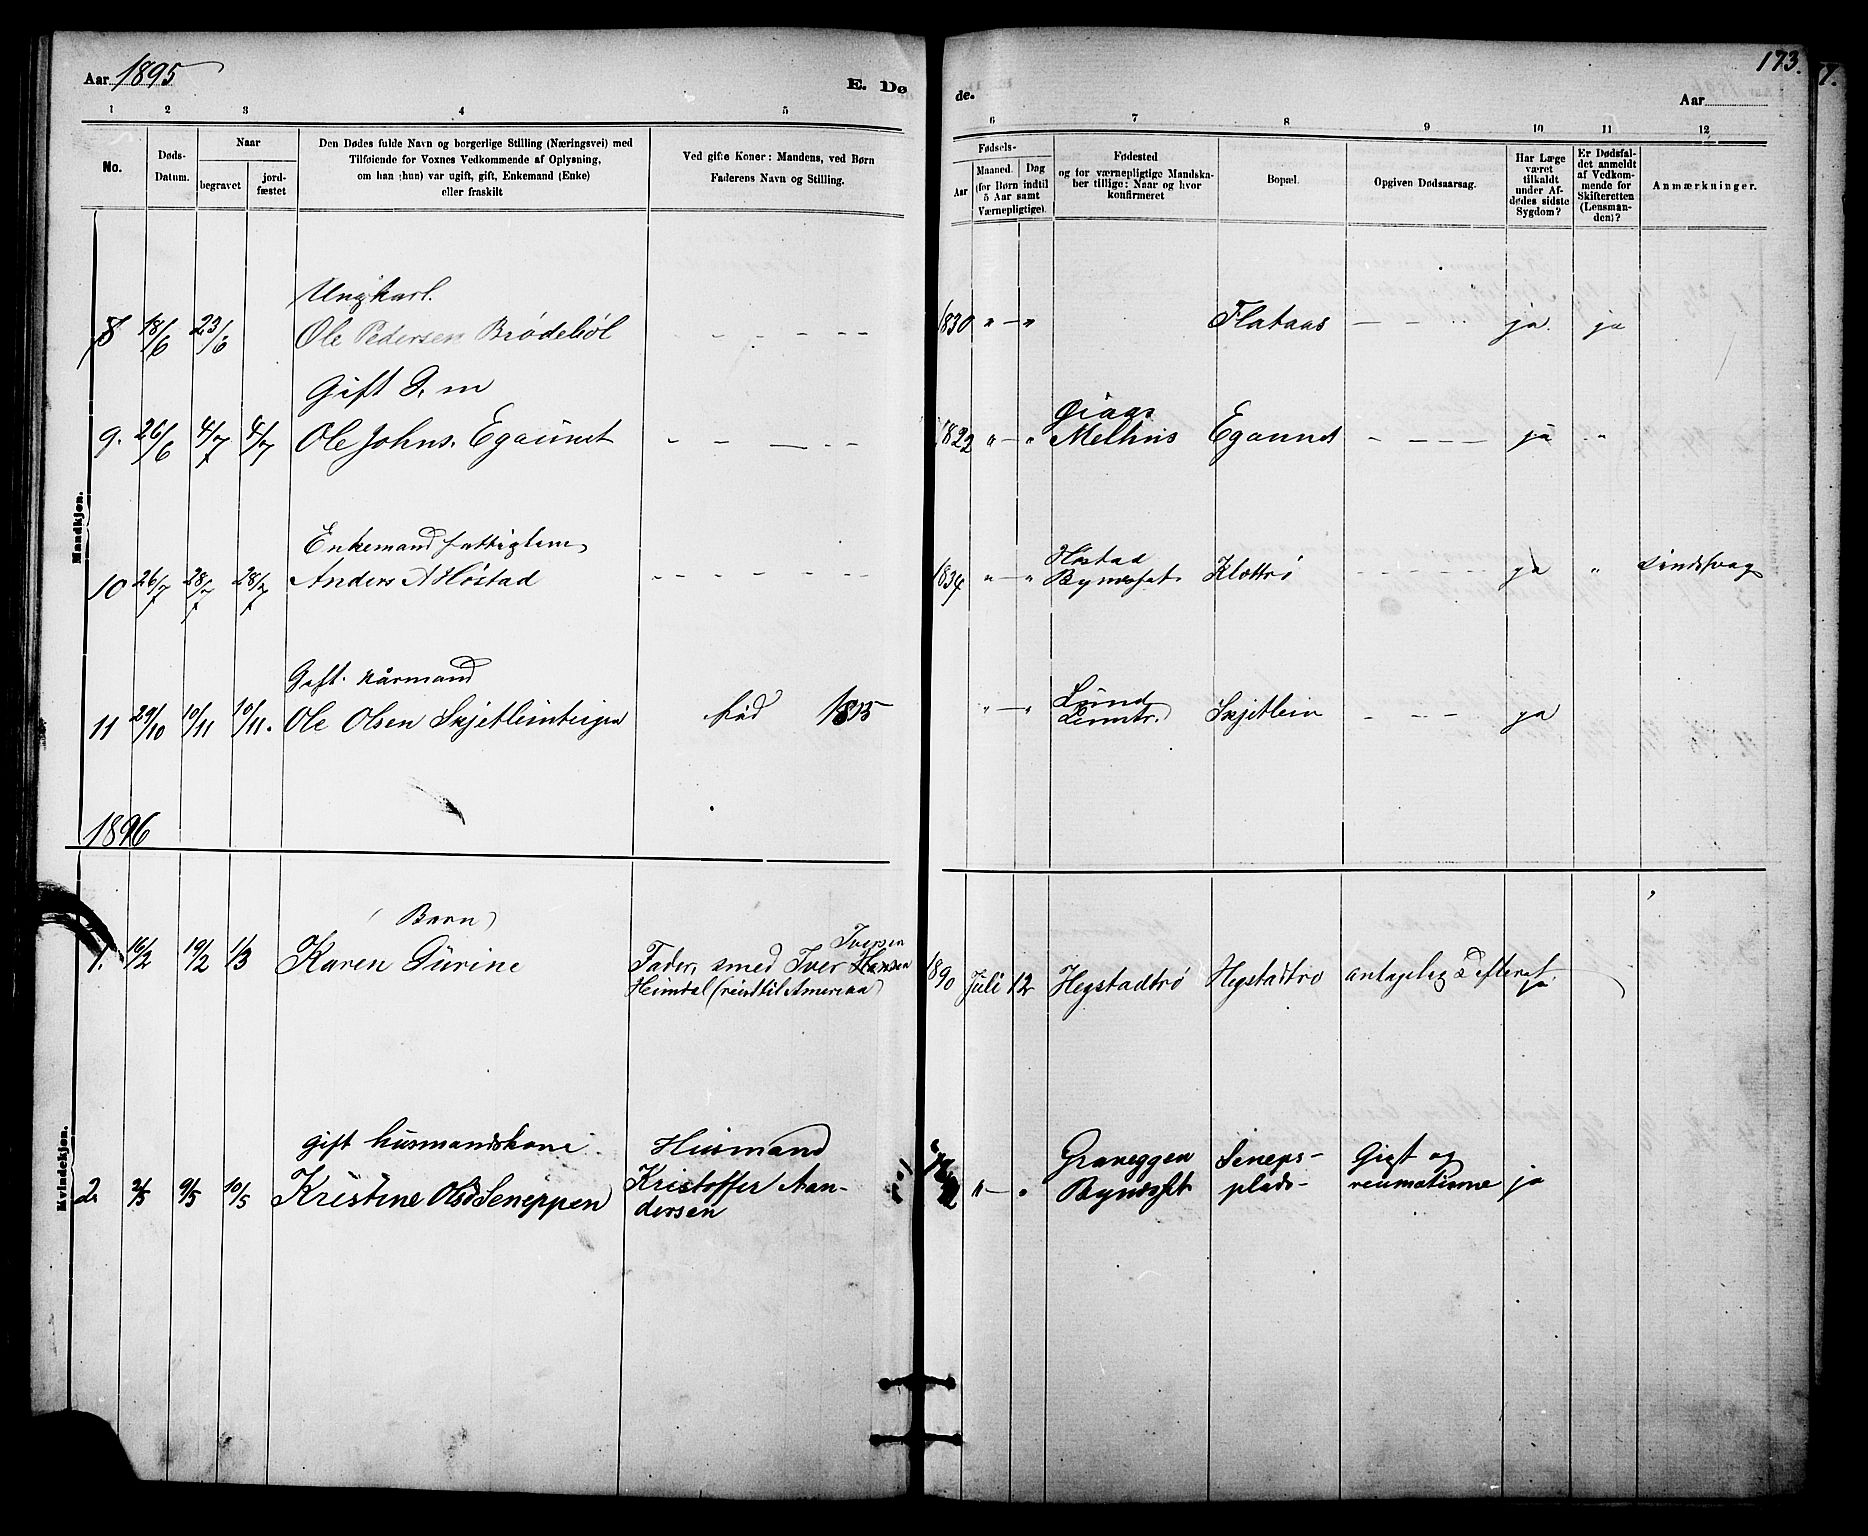 Aar 1895
E. Dø
de.
173.
Aar
7.
1 2 3 4 5
6 7 8 9 10 11 12
No.
Døds-
Datum.
Naar
begravet
jord-
fæstet
Den Dødes fulde Navn og borgerlige Stilling (Næringsvei) med
Tilføiende for Voxnes Vedkommende af Oplysning,
om han (hun) var ugift, gift, Enkemand (Enke)
eller fraskilt
Ved gifte Koner: Mandens, ved Børn
Faderens Navn og Stilling.
Fødsels-
Aar
Maaned. Dag
(for Børn indtil
5 Aar samt
Værnepligtige).
Fødested
og for værnepligtige Mandska-
ber tillige: Naar og hvor
konfirmeret
Bopæl.
Opgiven Dødsaarsag.
Har Læge
været
tilkaldt
under Af-
dødes sidste
Sygdom?
Er Dødsfal-
det anmeldt
af Vedkom-
mende for
Skifteretten
(Lensman-
den)?
Anmærkninger.
Mandkjøn.
Ungkarl.
8 18/6 23/6 Ole Pedersen Brødebøl - - - - - 1830 " — " Flataas — - " ja. ja
Gift G. m
9. 26/6 4/7 4/7 Ole Johns. Egaunet - - — - - 1822 " — "
Melhus Egaunet - - - - ja "
Enkemand fattiglem
10 26/7 28/7 28/7 Anders A Høstad - - - - - 1834 " — " Høstad
Bynesset Klottrø - - - - - ja "
Gift. Kårmand
11 29/10 10/11 10/11. Ole Olsen Skjetleinteigen fød 1815 " — " Lund
Leinstr. Skjetlein - - - - ja
1896
Kvindekjøn.
(Barn)
1. 16/2 19/2 1/3 Karen Gurine Fader, smed Iver Hansen
Iversen
Heimdal (reist til Amerika)
1890 Juli 12 Hegstadtrø Hegstadtrø antagelig Difterit. ja
gift husmandskone Husmand
2. 2/5 9/5 10/5 Kristine OlsD Seneppen Kristoffer Aan-
dersen
" — " Graneggen
Bynesset Seneps-
plads- Gigt og
reumatisme ja